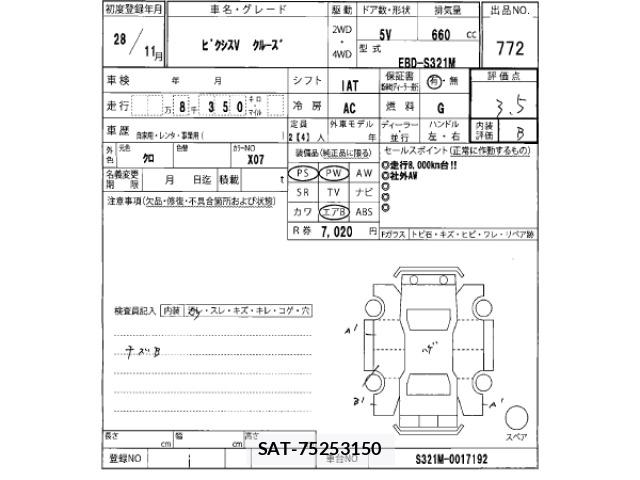 初度登録年月 車名・グレード 駆動 ドア数・形状 排気量 出品NO.
28/11月 ピクシスV クルーズ 2WD・4WD 5V 660 cc 772
型式 EBD-S321M
車検 年 月 シフト IAT 保証書 有・無 評価点 3.5
走行 万 8千 350 キロ マイル 冷房 AC 燃料 G
車歴 自家用・レンタ・事業用( 定員 2【4】人 外車モデル 年 ディーラー・並行 ハンドル 左・右 内装評価 B
外色 元色 クロ 色替 カラーNO X07 装備品(純正品に限る) セールスポイント(正常に作動するもの)
名義変更期限 月 日迄 積載 t PS PW AW
◎走行8,000km台!!
◎社外AW
◎
◎
◎
注意事項(欠品・修復・不具合箇所および状態) SR TV ナビ
カワ エアB ABS
R券 7,020 円 Fガラス トビ石・キズ・ヒビ・ワレ・リペア跡
検査員記入 内装 汚レ・スレ・キズ・キレ・コゲ・穴
A'
チズB
B' A'
スペア
長さ cm 幅 cm 高さ
SAT-75253150
登録NO 車台NO S321M-0017192